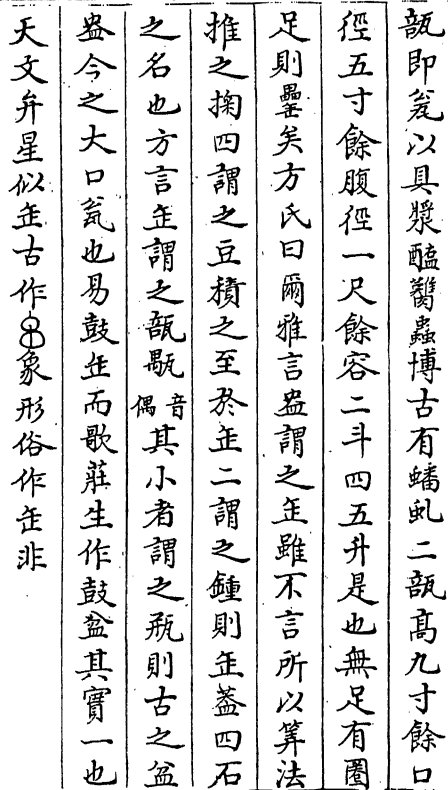 瓿即瓮以具漿醯蘸蟲博古有蟠虬二瓿髙九寸餘口
徑五寸餘腹徑一尺餘容二斗四五升是也無足有圈
足則罍矣方氏曰爾雅言盎謂之缶雖不言所以筭法
推之掬四謂之豆積之至於缶二謂之鍾則缶葢四石
之名也方言缶謂之瓿㼴音偶其小者謂之瓶則古之盆
盎今之大口瓮也易鼓缶而歌莊生作鼓盆其實一也
天文弁星似缶古作象形俗作缶非